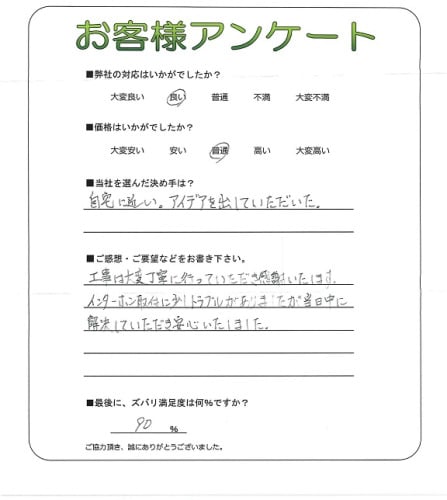 お客様アンケート
■弊社の対応はいかがでしたか？
大変良い 良い 普通 不満 大変不満
■価格はいかがでしたか？
大変安い 安い 普通 高い 大変高い
■当社を選んだ決め手は？
自宅に近い。アイデアを出していただいた。
■ご感想・ご要望などをお書き下さい。
工事は大変丁寧に行っていただき感謝いたします。
インターホン取付に少しトラブルがありましたが当日中に
解決していただき安心いたしました。
■最後に、ズバリ満足度は何％ですか？
90 ％
ご協力頂き、誠にありがとうございました。